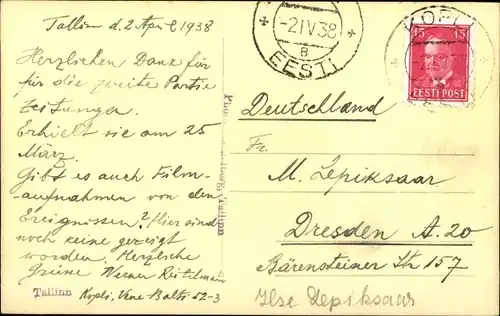 Tallinn d. 2 April 1938
Herzlichen Dank für
für die zweite Partie
Zeitungen.
Erhielt sie am 25
März.
Gibt es auch Film-
aufnahmen von den
Ereignissen? Hier sind
noch keine gezeigt
worden. Herzliche
Grüße Werner
Kopli, Vene Balti 52-3
Tallinn
Tallinn
-2 IV 38
B
EESTI
KOPLI
15 15
EESTI POST
Deutschland
Fr.
M. Lepiksaar
Dresden A. 20
Bärensteiner Str 157
Ilse Lepiksaar